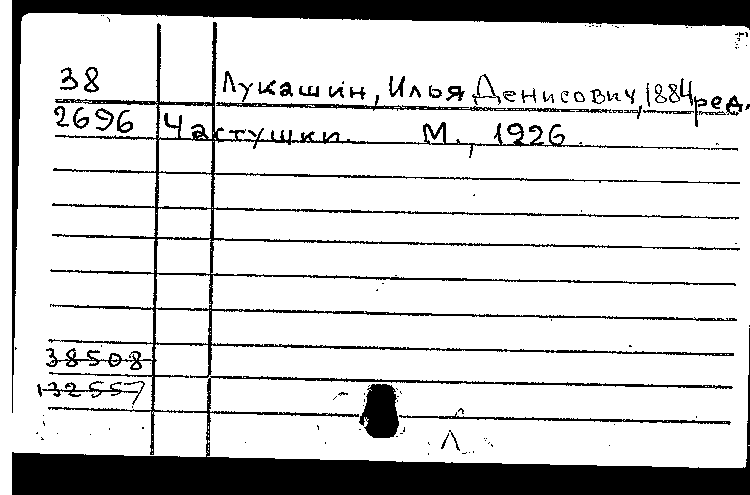 38 Лукашин, Илья Денисович, 1884, ред.
2696 Частушки. М., 1926.
38508
132557
Л